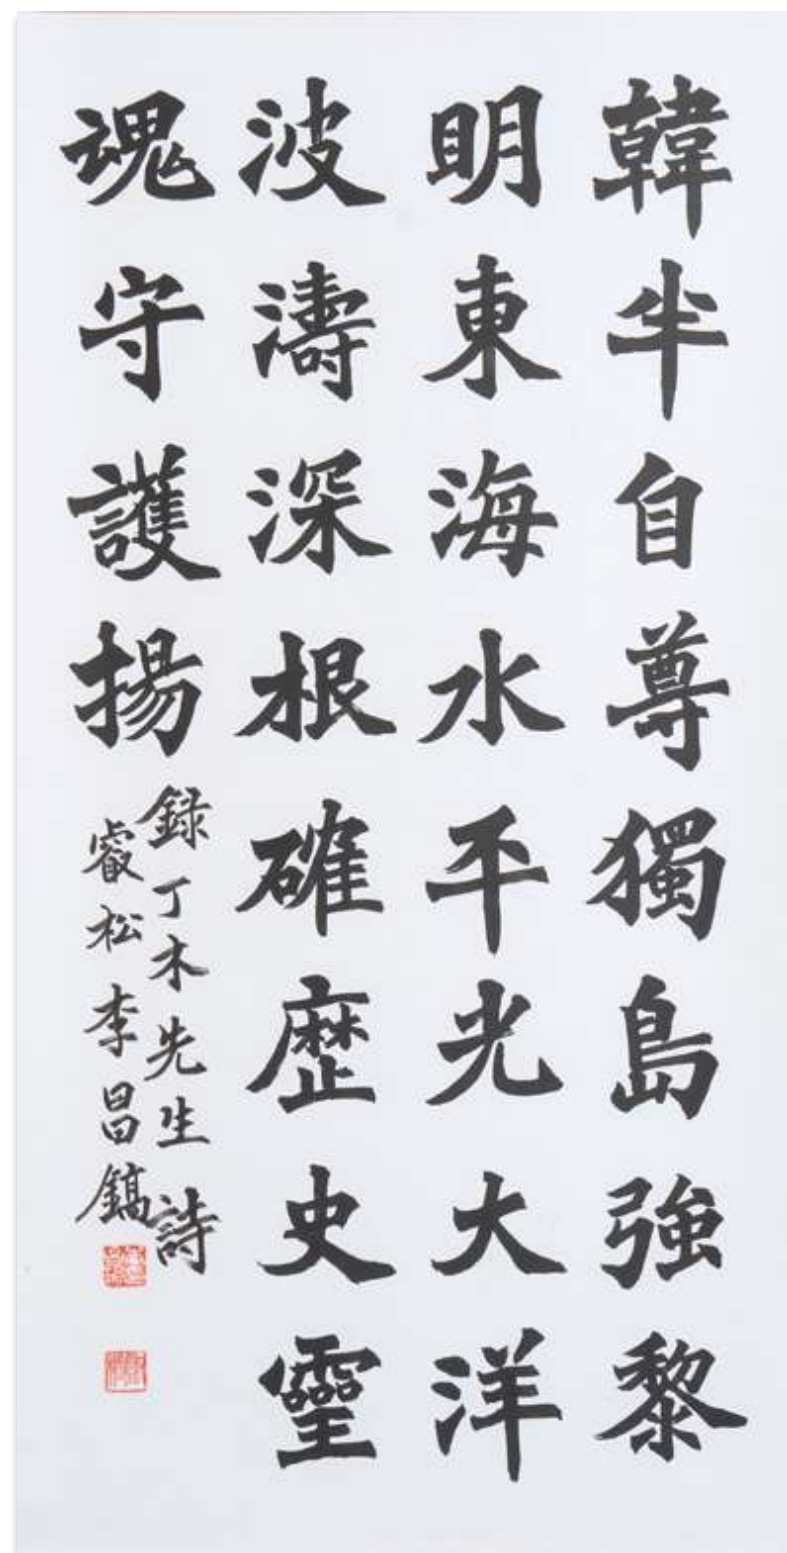 韓半自尊獨島強黎
明東海水平光大洋
波濤深根確歷史靈
魂守護揚
録丁木先生詩
睿松李昌鎬